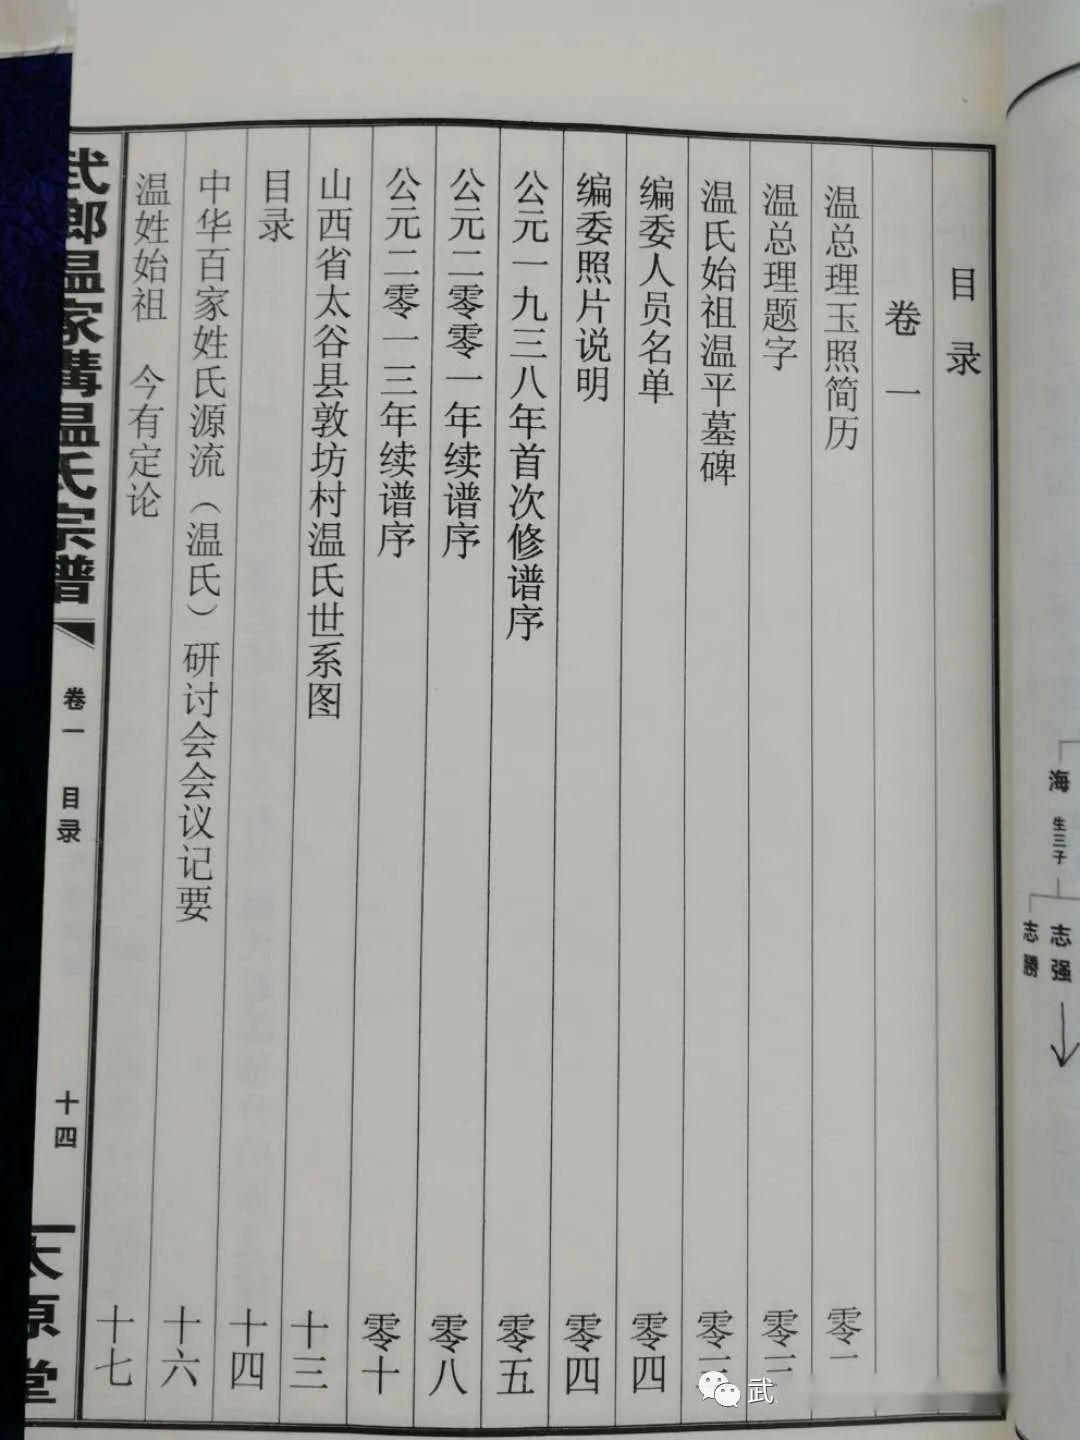 海 生三子
志强
志勝
目录
卷一
温总理玉照简历 零一
温总理题字 零
温氏始祖温平墓碑 零
编委人员名单 零四
编委照片说明 零四
公元一九三八年首次修谱序 零五
公元二零零一年续谱序 零八
公元二零一三年续谱序 零十
山西省太谷县敦坊村温氏世系图 十三
目录 十四
中华百家姓氏源流（温氏）研讨会会议记要 十六
温姓始祖 今有定论 十七
武郎温家溝温氏宗谱
卷一 目录
十四
太原堂
武